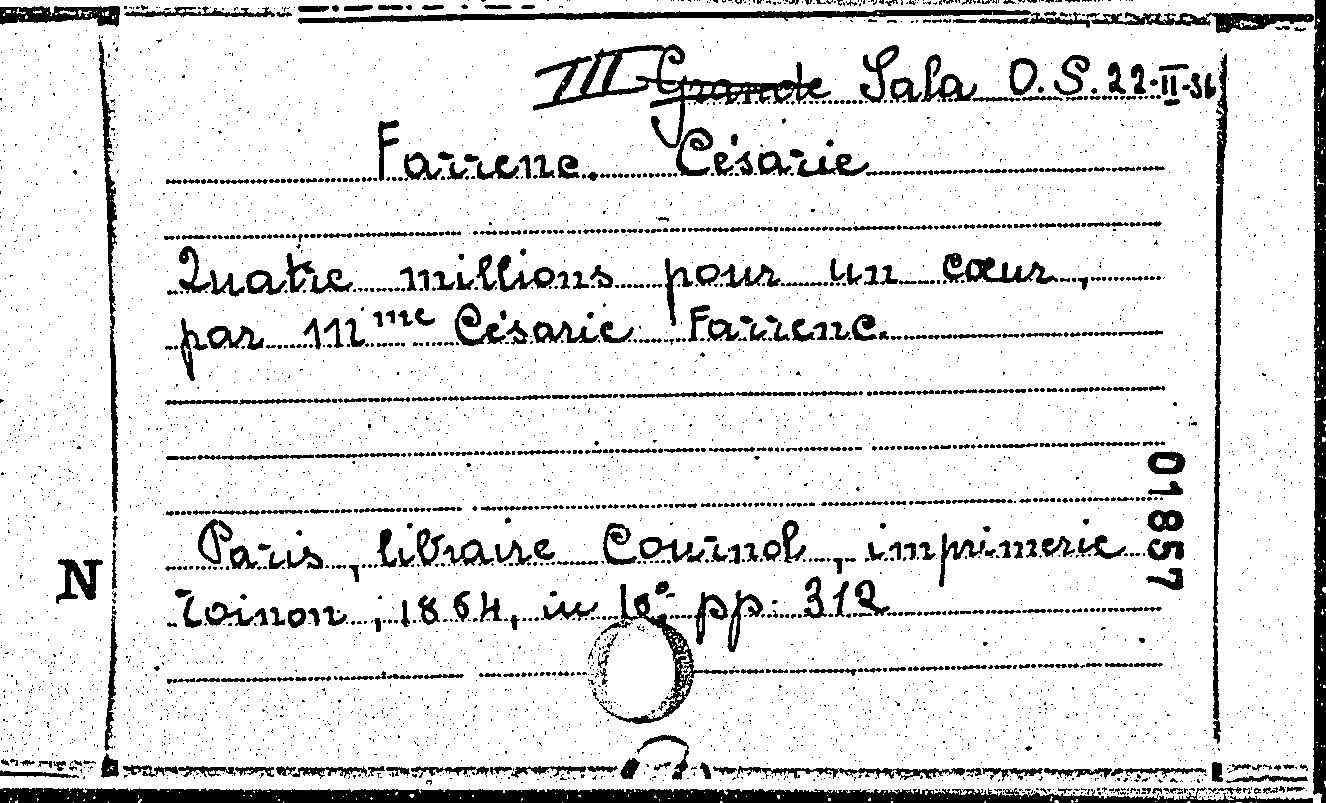 III Grande Sala O.S. 22-II-36
Farrenc. Césarie
Quatre millions pour un cœur,
par Mme Césarie Farrenc.
01857
Paris, libraire Cournol, imprimerie
N
Toinon, 1864, in 16º pp. 312